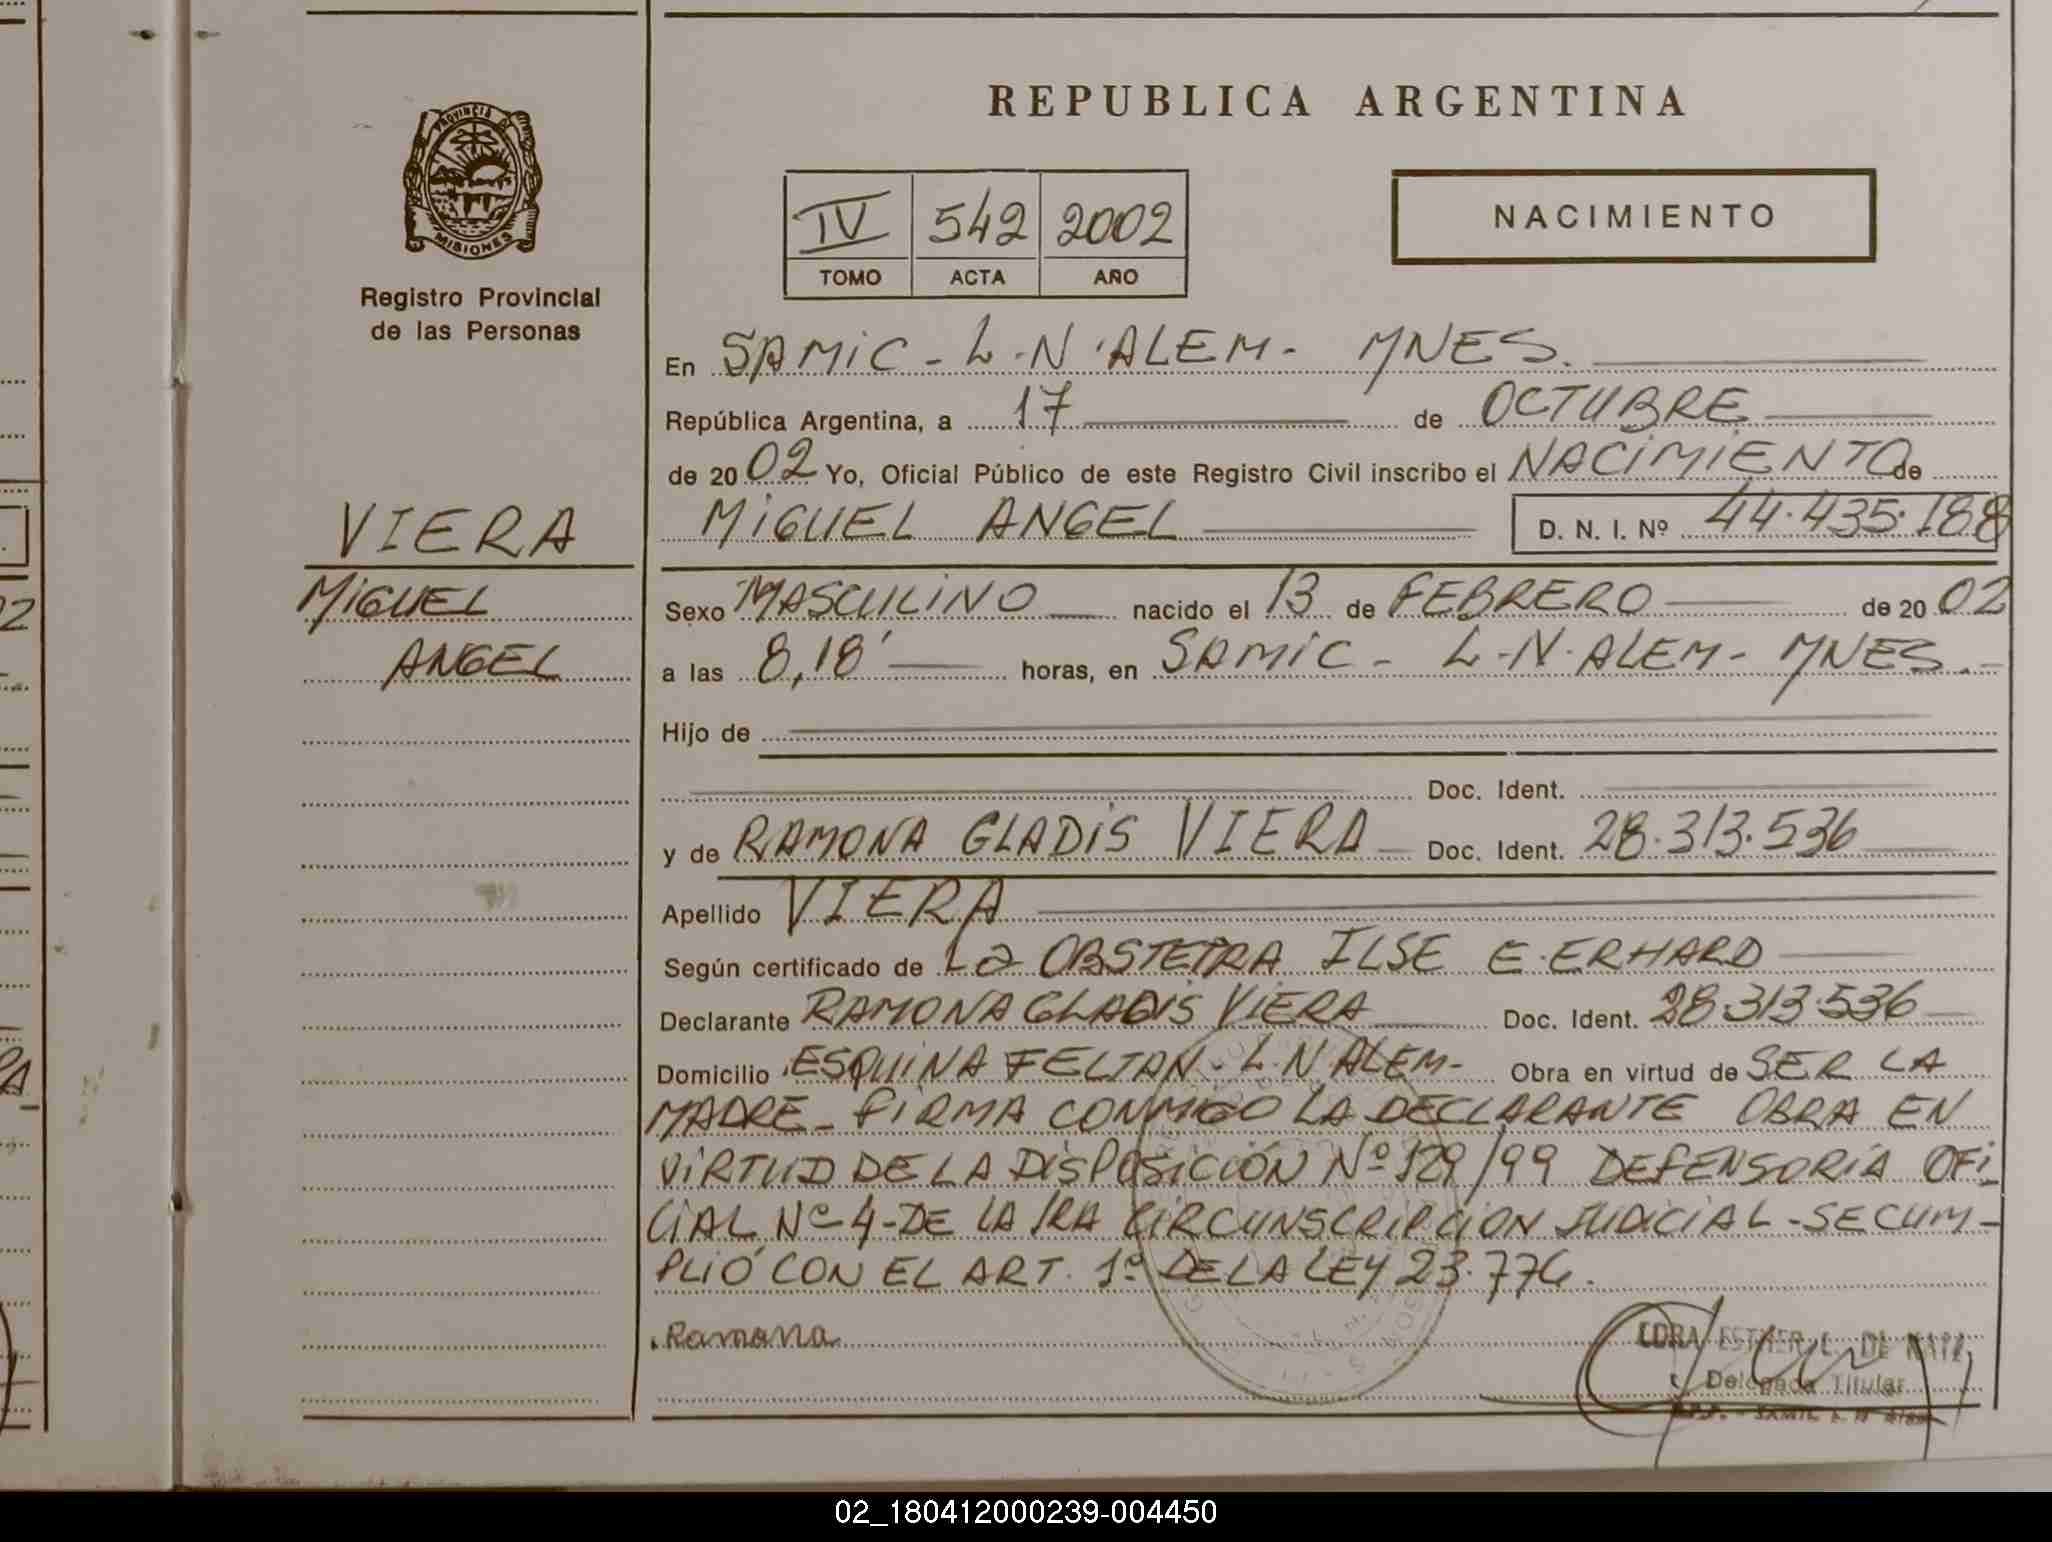 REPUBLICA ARGENTINA
PROVINCIA DE
MISIONES
Registro Provincial
de las Personas
IV 542 2002
TOMO ACTA AÑO
NACIMIENTO
VIERA
MIGUEL
ANGEL
En SAMIC - L.N. ALEM - MNES.
República Argentina, a 17 de OCTUBRE
de 20 02 Yo, Oficial Público de este Registro Civil inscribo el NACIMIENTO de
MIGUEL ANGEL D. N. I. Nº 44.435.188
Sexo MASCULINO nacido el 13 de FEBRERO de 20 02
a las 8,18' horas, en SAMIC - L.N. ALEM - MNES. -
Hijo de
Doc. Ident.
y de RAMONA GLADIS VIERA Doc. Ident. 28.313.536
Apellido VIERA
Según certificado de La OBSTETRA ILSE E. ERHARD
Declarante RAMONA GLADIS VIERA Doc. Ident. 28.313.536
Domicilio ESQUINA FELTAN - L.N ALEM - Obra en virtud de SER LA
MADRE - FIRMA CONMIGO LA DECLARANTE OBRA EN
VIRTUD DE LA DISPOSICIÓN Nº 129/99 DEFENSORÍA OFI
CIAL Nº 4 - DE LA 1RA CIRCUNSCRIPCION JUDICIAL - SE CUM-
PLIÓ CON EL ART. 1º DE LA LEY 23.776.
Ramona
ESTHER L. DE
Delegada Titular
02_180412000239-004450